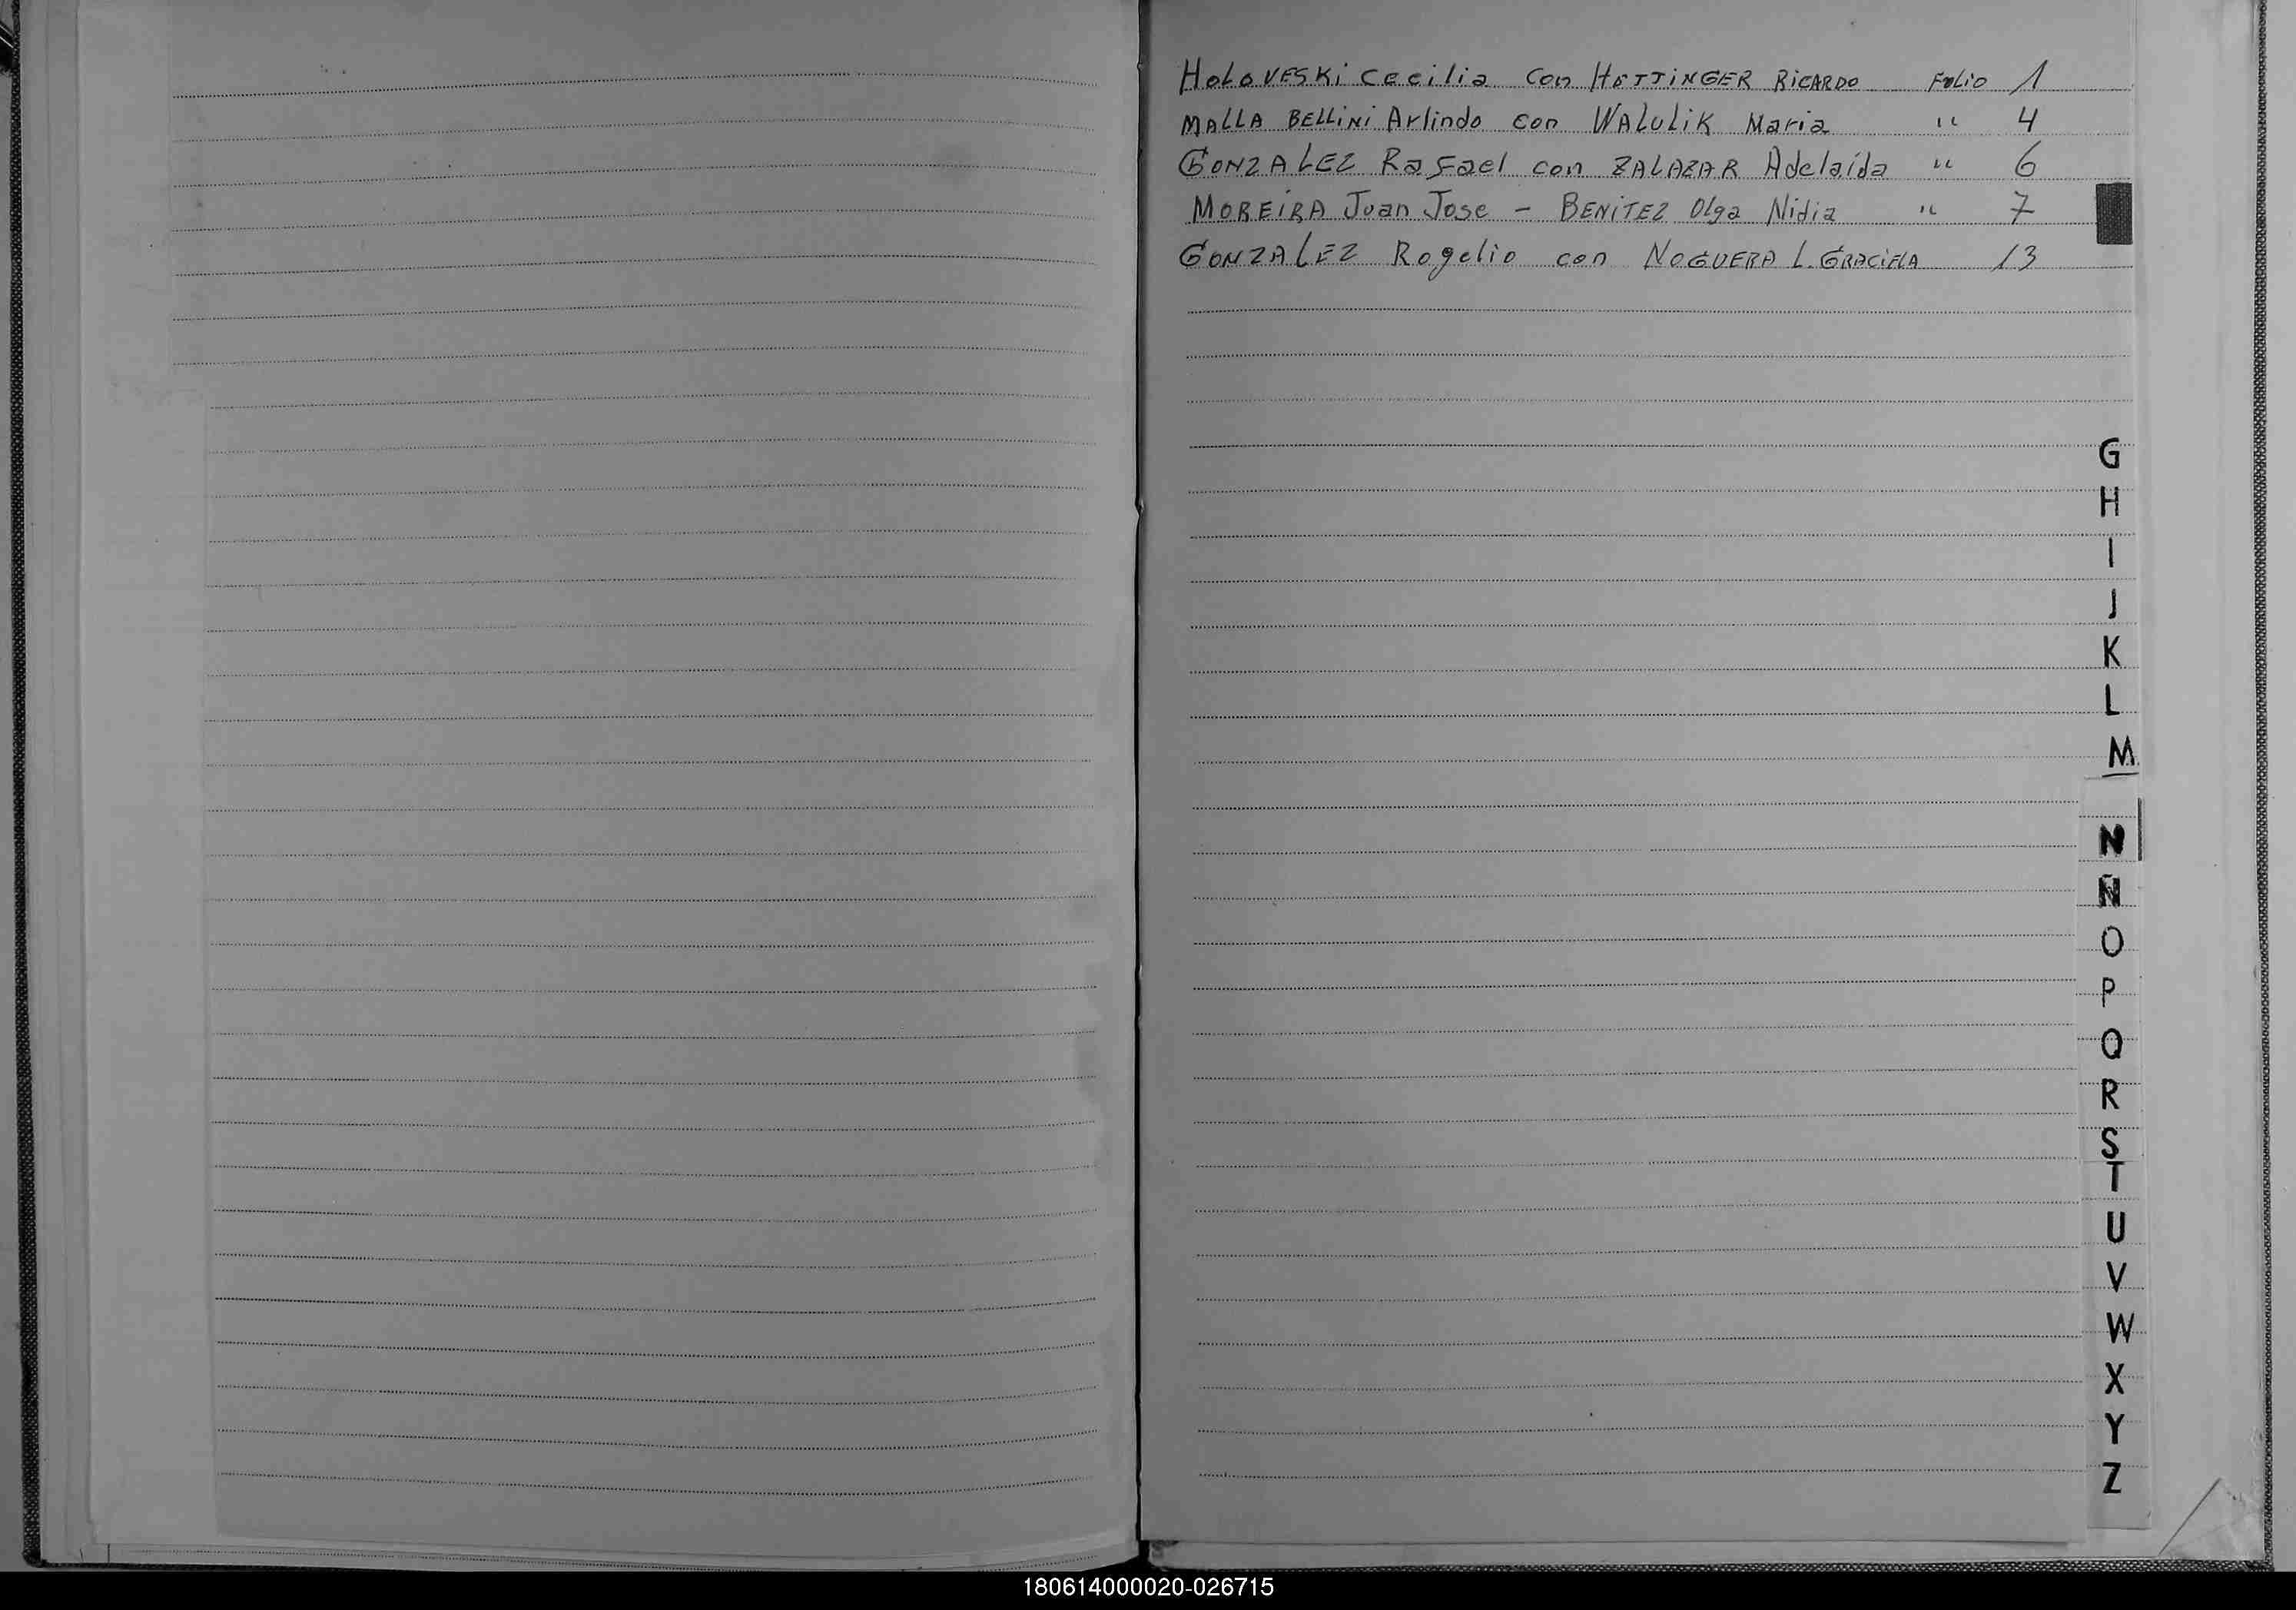 HOLOVESKi Cecilia con HETTiNGER RiCARDO Folio 1
MALLA BELLiNi Arlindo con WALULiK Maria " 4
GONZALEZ Rafael con ZALAZAR Adelaida " 6
MOREiRA Juan Jose - BENiTEZ Olga Nidia " 7
GONZALEZ Rogelio con NOGUERA L. GRACiELA 13
G
H
I
J
K
L
M
N
Ñ
O
P
Q
R
S
T
U
V
W
X
Y
Z
180614000020-026715